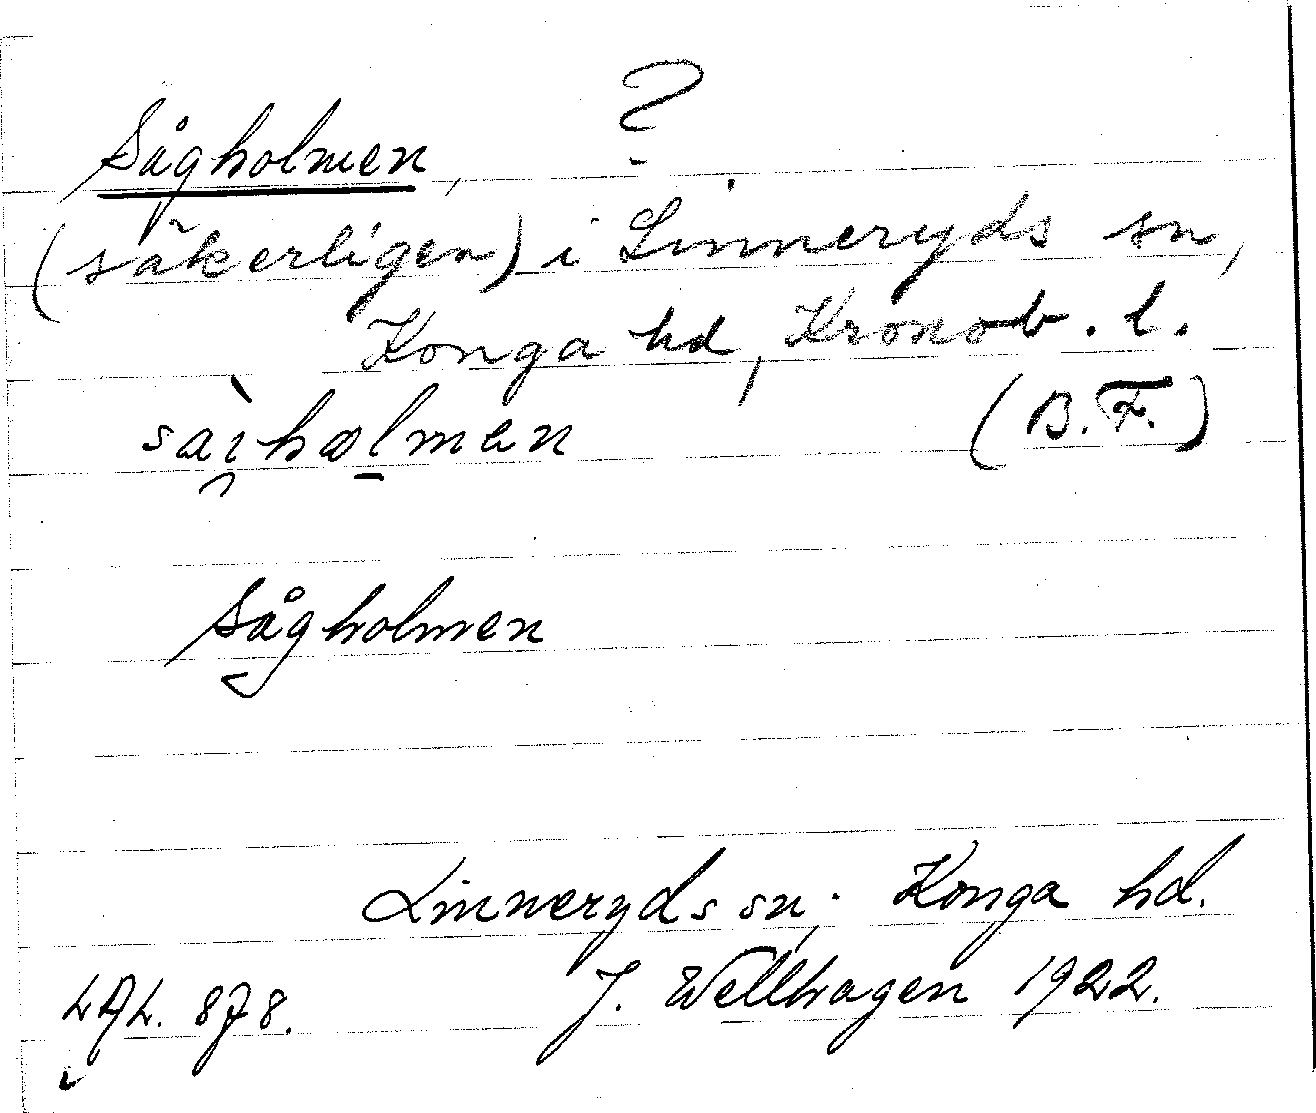 Sågholmen, ?
(säkerligen) i Linneryds sn,
Konga hd, Kronob. l.
(B.F.)
Sågholmen
Linneryds sn. Konga hd.
J. Wellhagen 1922.
878.